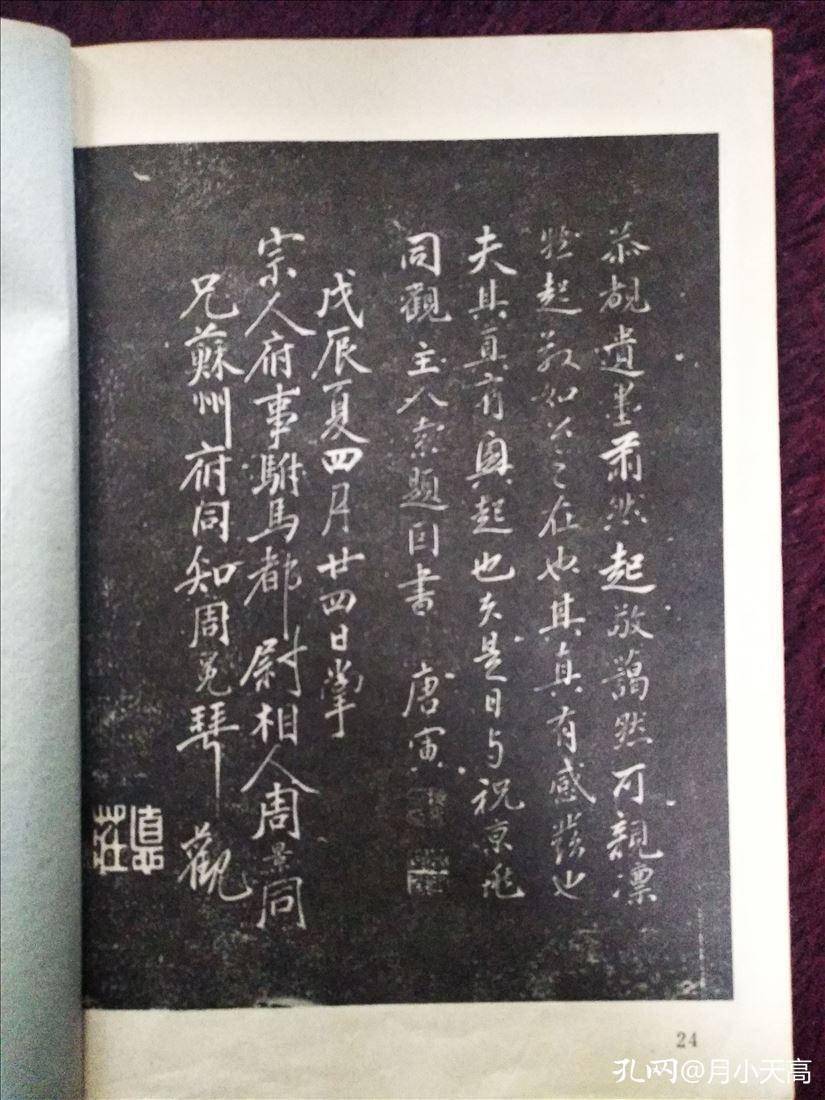 恭覩遺墨肅然起敬藹然可親凛
然起敬如公之在也其真有感發也
夫其真有興起也夫是日与祝京兆
同觀主人索題因書 唐寅
戊辰夏四月廿四日掌
宗人府事駙馬都尉相人周景同
兄蘇州府同知周冕琴觀
真
莊
24
孔网@月小天高